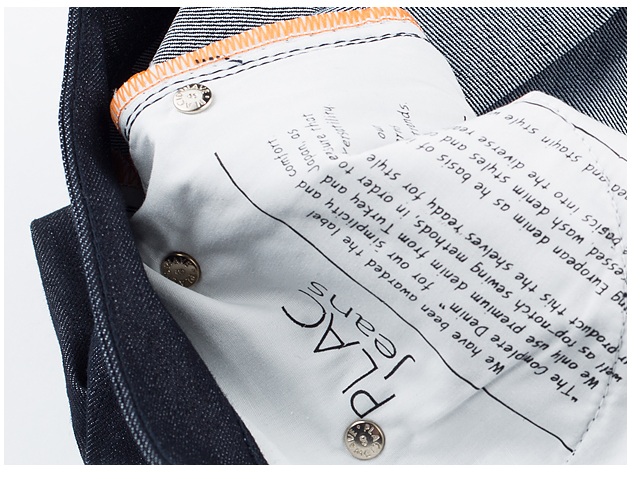 PLAC
Jeans
We have been awarded the label
"The Complete Denim" for our simplicity and comfort
We only use premium denim from Turkey and Japan, as
well as top-notch sewing methods, in order to esure that
product this the shelves ready for style
European denim as he basis of
wash denim styles and
basics into the diverse
and stayin style
PLAC